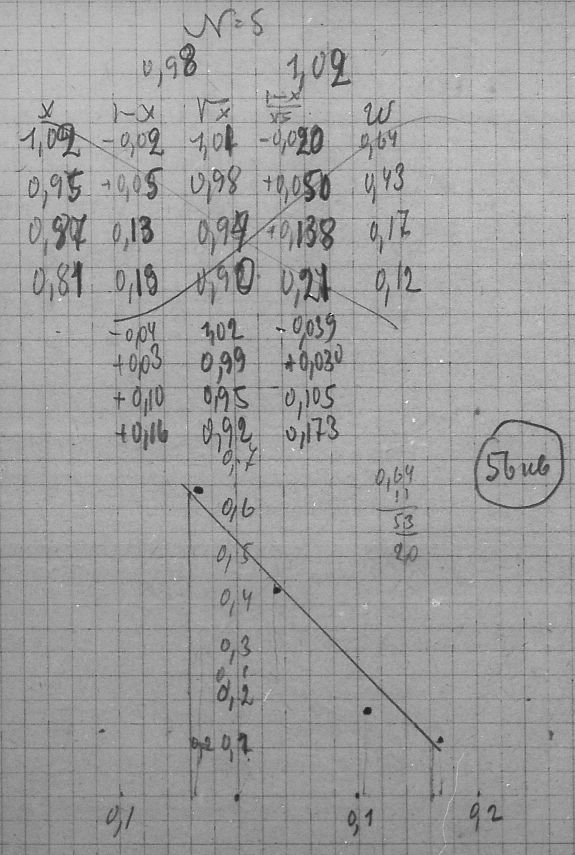 N=5
0,98 1,02
x 1-x √x 1-x/√x W
1,02 -0,02 1,01 -0,020 0,64
0,95 +0,05 0,98 +0,050 0,43
0,87 0,13 0,94 +0,138 0,17
0,81 0,19 0,90 0,21 0,12
-0,04 1,02 -0,039
+0,03 0,99 +0,030
+0,10 0,95 0,105
+0,16 0,92 0,173
0,7
0,64
11
53
20
56 кв
0,6
0,5
0,4
0,3
0,2
0,2 0,1
0,1 0,1 0,2